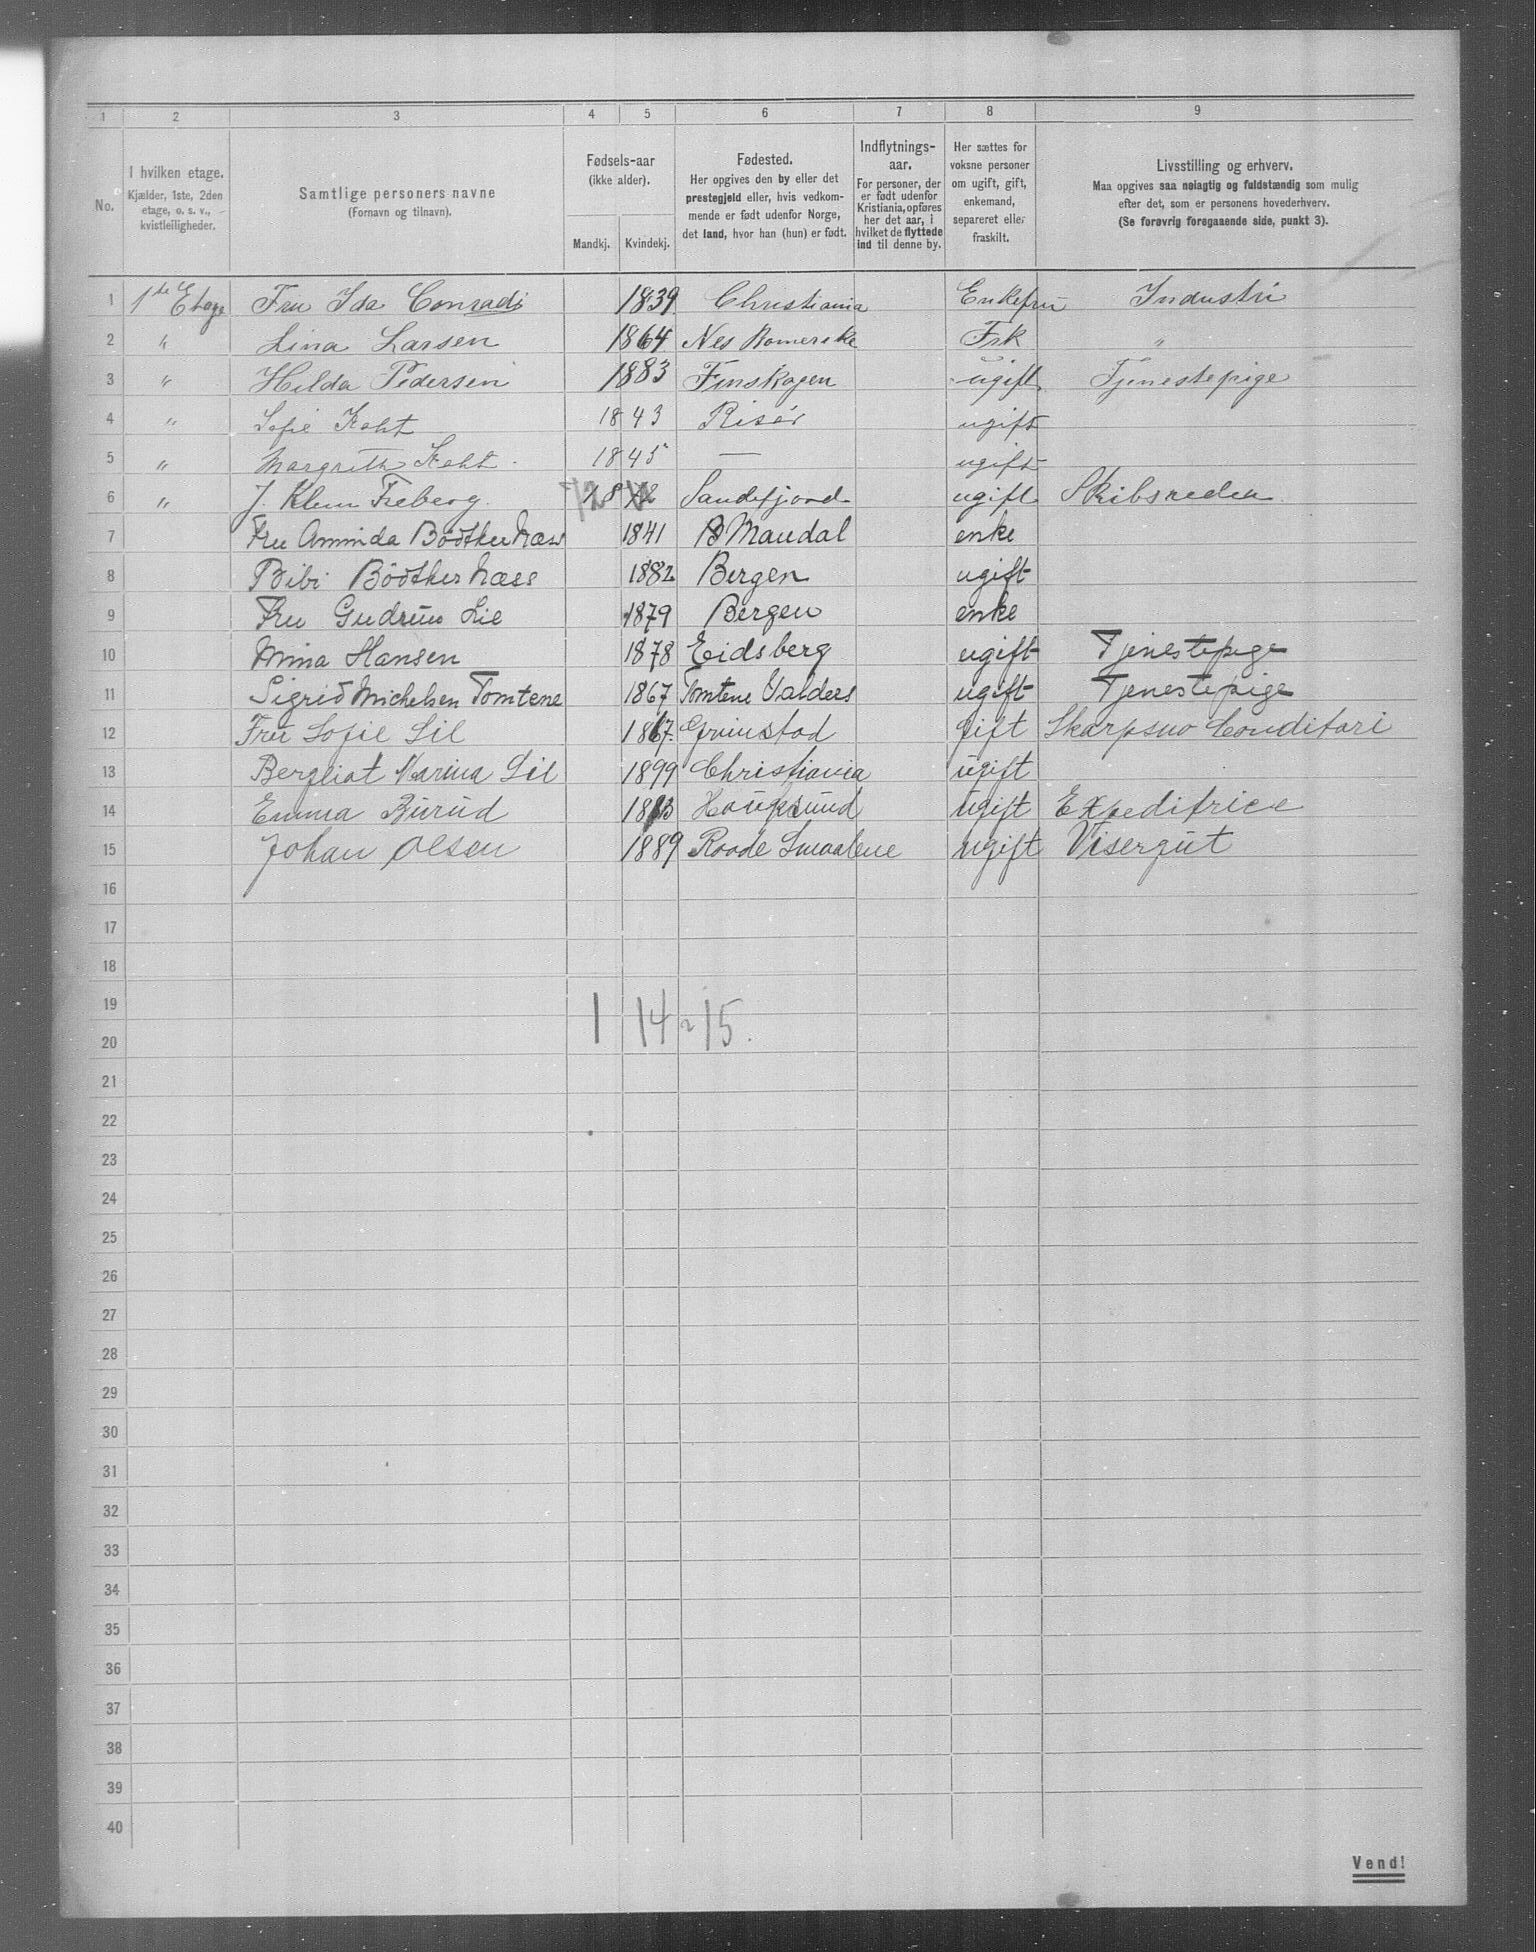 1 2 3 4 5 6 7 8 9
No.
I hvilken etage.
Kjælder, 1ste, 2den
etage, o. s. v.,
kvistleiligheder.
Samtlige personers navne
(Fornavn og tilnavn).
Fødsels-aar
(ikke alder).
Mandkj. Kvindekj.
Fødested.
Her opgives den by eller det
prestegjeld eller, hvis vedkom-
mende er født udenfor Norge,
det land, hvor han (hun) er født.
Indflytnings-
aar.
For personer, der
er født udenfor
Kristiania, opføres
her det aar, i
hvilket de flyttede
ind til denne by.
Her sættes for
voksne personer
om ugift, gift,
enkemand,
separeret eller
fraskilt.
Livsstilling og erhverv.
Maa opgives saa nøiagtig og fuldstændig som mulig
efter det, som er personens hovederhverv.
(Se forøvrig foregaaende side, punkt 3).
1 1ste Etage Fru Ida Conradi 1839 Christiania Enkefru Industri
2 " Lina Larsen 1864 Nes Romerike Frk "
3 " Hilda Pedersen 1883 Finskogen ugift Tjenestepige
4 " Sofie Koht 1843 Risör ugift
5 " Margrethe Koht. 1845 — ugift
6 " J. Klem Freberg. 18 2 Sandefjord ugift Skibsreder
7 Fru Aminda Bödtker Næss 1841 Mandal enke
8 Bibi Bödtker Næss 1882 Bergen ugift
9 Fru Gudrun Lie 1879 Bergen enke
10 Mina Hansen 1878 Eidsberg ugift Tjenestepige
11 Sigrid Michelsen Tomtene 1867 Tomtene Valders ugift Tjenestepige
12 Fru Sofie Lil 1867 Grimstad gift Skarpsno Conditori
13 Bergliot Marina Lil 1899 Christiania ugift
14 Emma Burud 18 3 Hougsund ugift Expeditrice
15 Johan Olsen 1889 Raade Smaalene ugift Visergut
16
17
18
19
1 14 = 15.
20
21
22
23
24
25
26
27
28
29
30
31
32
33
34
35
36
37
38
39
40
Vend!